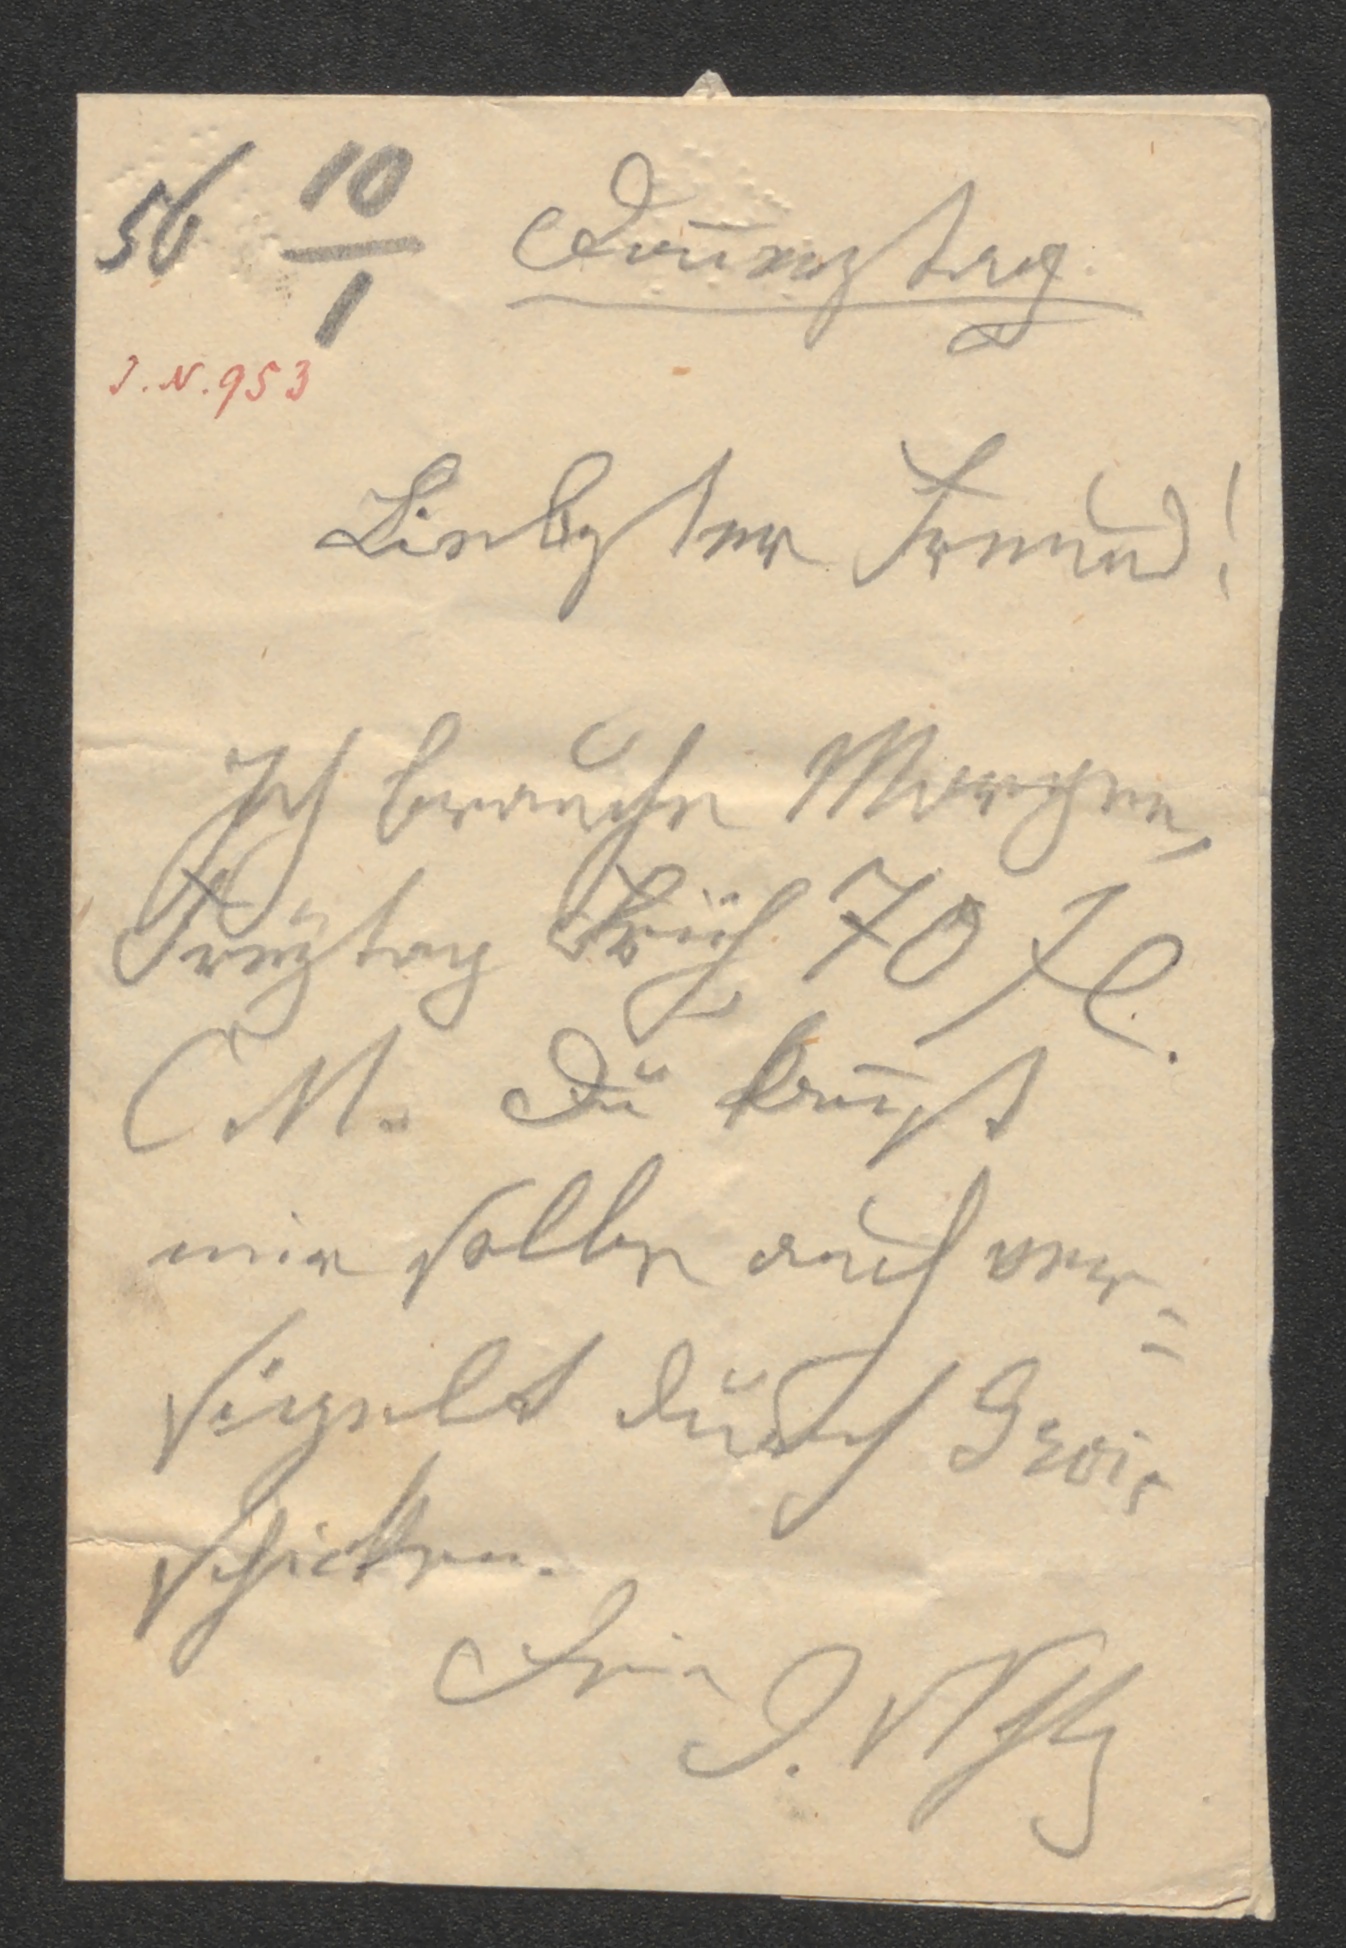 56 10/1 Don̄erstag
I.N.953
Liebster Freund!
Ich brauche Morgen,
Freytag Früh 70 fl.
C.M. Du kan̄st
mir selbe auch ver=
siegelt durch Grois
schicken.
Dein
J. Nestroy